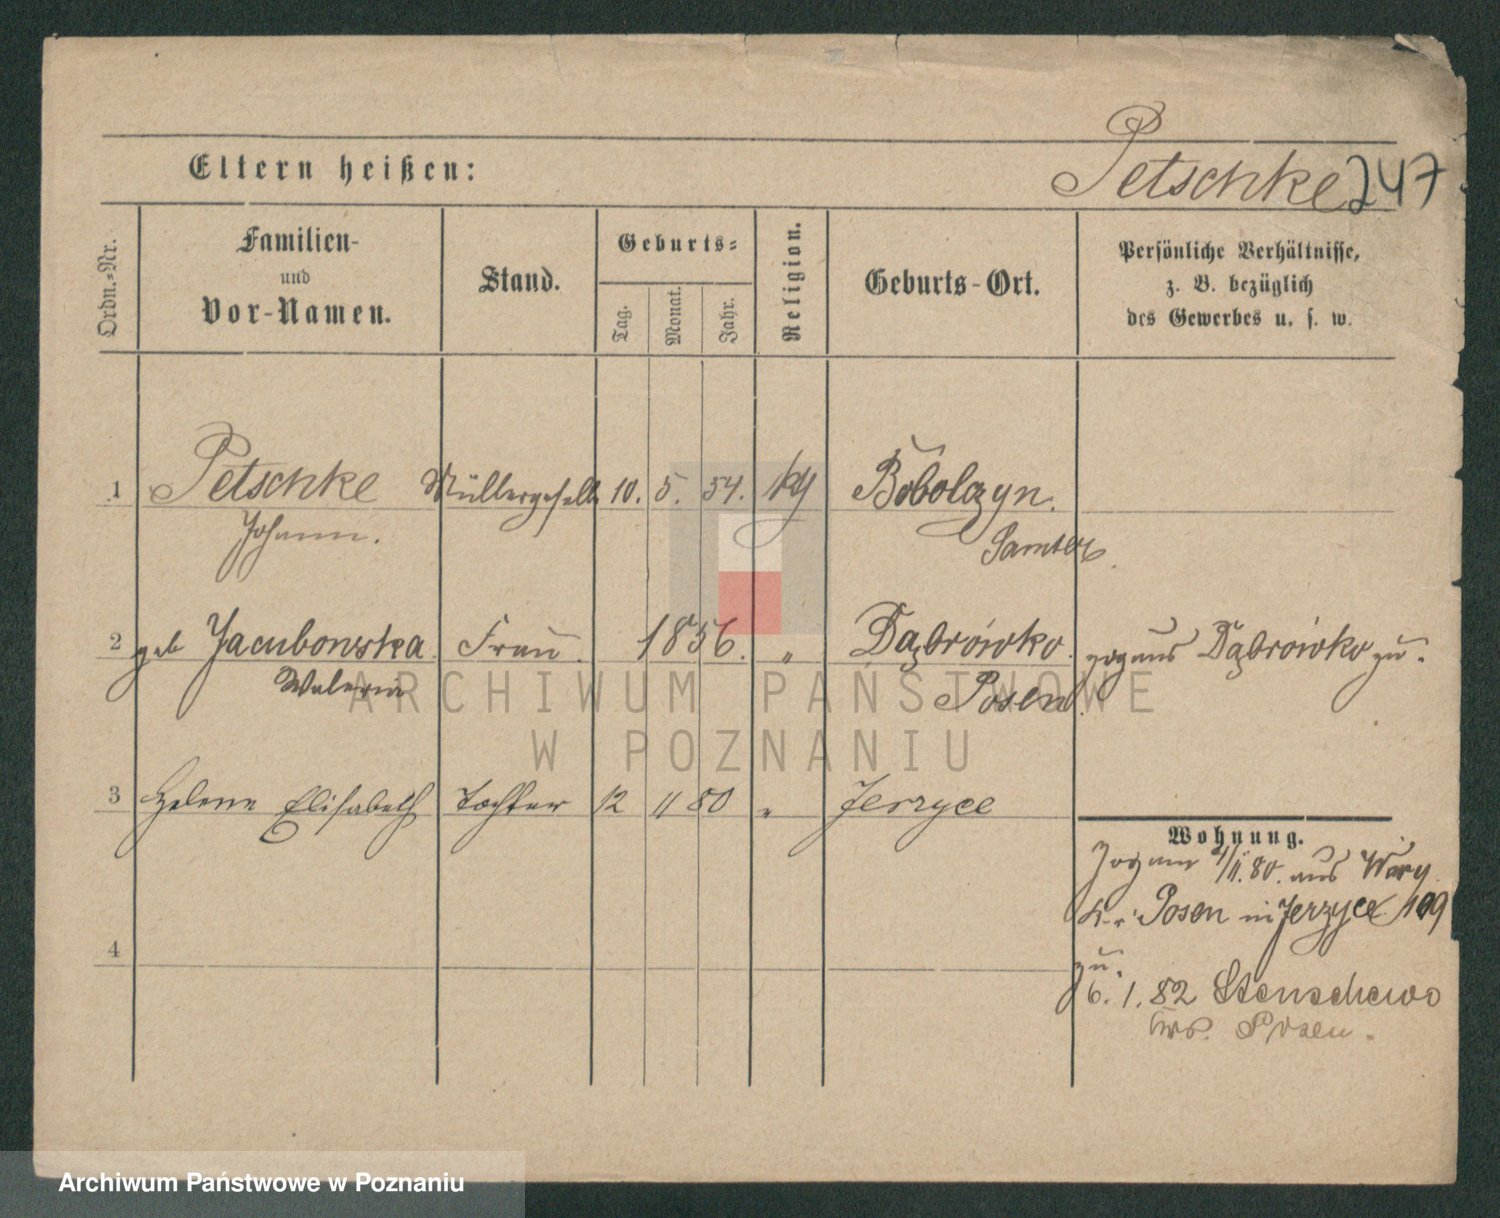 Petschke 247
Eltern heißen:
Ordn.-Nr.
Familien-
und
Vor-Namen.
Stand.
Geburts-
Tag.
Monat.
Jahr.
Religion.
Geburts-Ort.
Persönliche Verhältnisse,
z. B. bezüglich
des Gewerbes u. s. w.
1 Petschke Müllergeselle 10. 5. 54. Bobolczyn.
Johann. Samter
2 geb Jacubowska Frau. 1856. " Dąbrówko. zog aus Dąbrówko zu.
Waleria Posen
3 Helene Elisabeth Tochter 12 11 80 " Jerzyce
Wohnung.
Zog am 4/11.80. aus
Kr. Posen in Jerzyce 109
zu.
4
6. 1. 82 Stenschewo
Krs. Posen.
ARCHIWUM PAŃSTWOWE
W POZNANIU
Archiwum Państwowe w Poznaniu